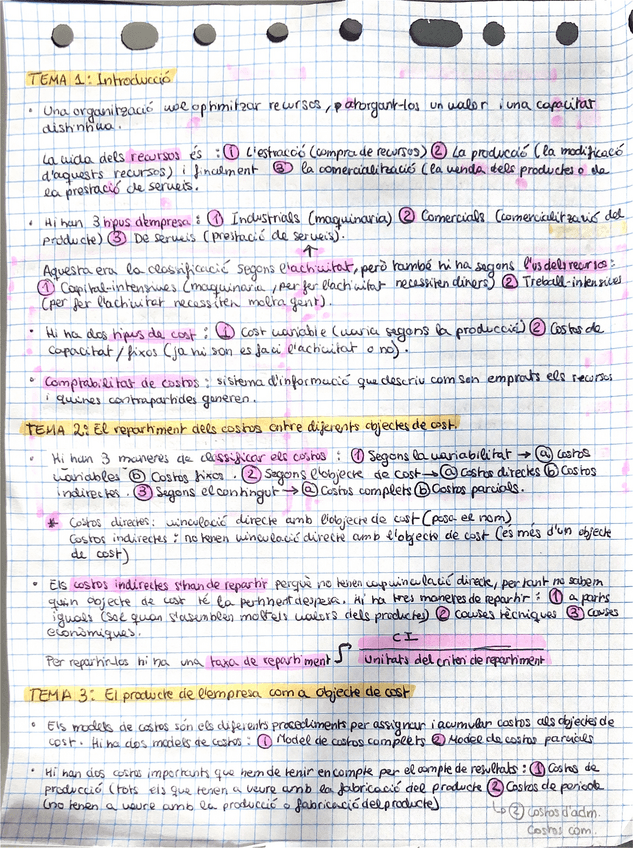 TEMA 1: Introducció
• Una organització vol optimitzar recursos, atorgant-los un valor i una capacitat
distintiva.
La vida dels recursos és: ① L'estracció (compra de recursos) ② La producció (la modificació
d'aquests recursos) i finalment ③ la comercialització (la venda dels productes o de
la prestació de serveis.
• Hi han 3 tipus d'empresa: ① Industrials (maquinaria) ② Comercials (comercialització del
producte) ③ De serveis (prestació de serveis).
↑
Aquesta era la classificació segons l'activitat, però també hi ha segons l'ús dels recursos:
① Capital-intensives (maquinaria, per fer l'activitat necessiten diners) ② Treball-intensives
(per fer l'activitat necessiten molta gent).
• Hi ha dos tipus de cost: ① Cost variable (varia segons la producció) ② Costos de
capacitat/fixos (ja hi son es faci l'activitat o no).
• Comptabilitat de costos: sistema d'informació que descriu com son emprats els recursos
i quines contrapartides generen.
TEMA 2: El repartiment dels costos entre diferents objectes de cost.
• Hi han 3 maneres de classificar els costos: ① Segons la variabilitat → ⓐ Costos
variables ⓑ Costos fixos. ② Segons l'objecte de cost → ⓐ Costos directes ⓑ Costos
indirectes. ③ Segons el contingut → ⓐ Costos complets ⓑ Costos parcials.
* Costos directes: vinculació directe amb l'objecte de cost (posa el nom)
Costos indirectes: no tenen vinculació directe amb l'objecte de cost (és més d'un objecte
de cost)
• Els costos indirectes s'han de repartir perquè no tenen cap vinculació directe, per tant no sabem
quin objecte de cost té la pertinent despesa. Hi ha tres maneres de repartir: ① a parts
iguals (sol quan s'assemblen molt els valors dels productes) ② Causes tècniques ③ Causes
econòmiques.
CI
Per repartir-los hi ha una taxa de repartiment
Unitats del criteri de repartiment
TEMA 3: El producte de l'empresa com a objecte de cost
• Els models de costos són els diferents procediments per assignar i acumular costos als objectes de
cost. Hi ha dos models de costos: ① Model de costos complets ② Model de costos parcials
• Hi han dos costos importants que hem de tenir en compte per el compte de resultats: ① Costos de
producció (tots els que tenen a veure amb la fabricació del producte ② Costos de periode
(no tenen a veure amb la producció o fabricació del producte)
↳ ② costos d'adm.
Costos com.